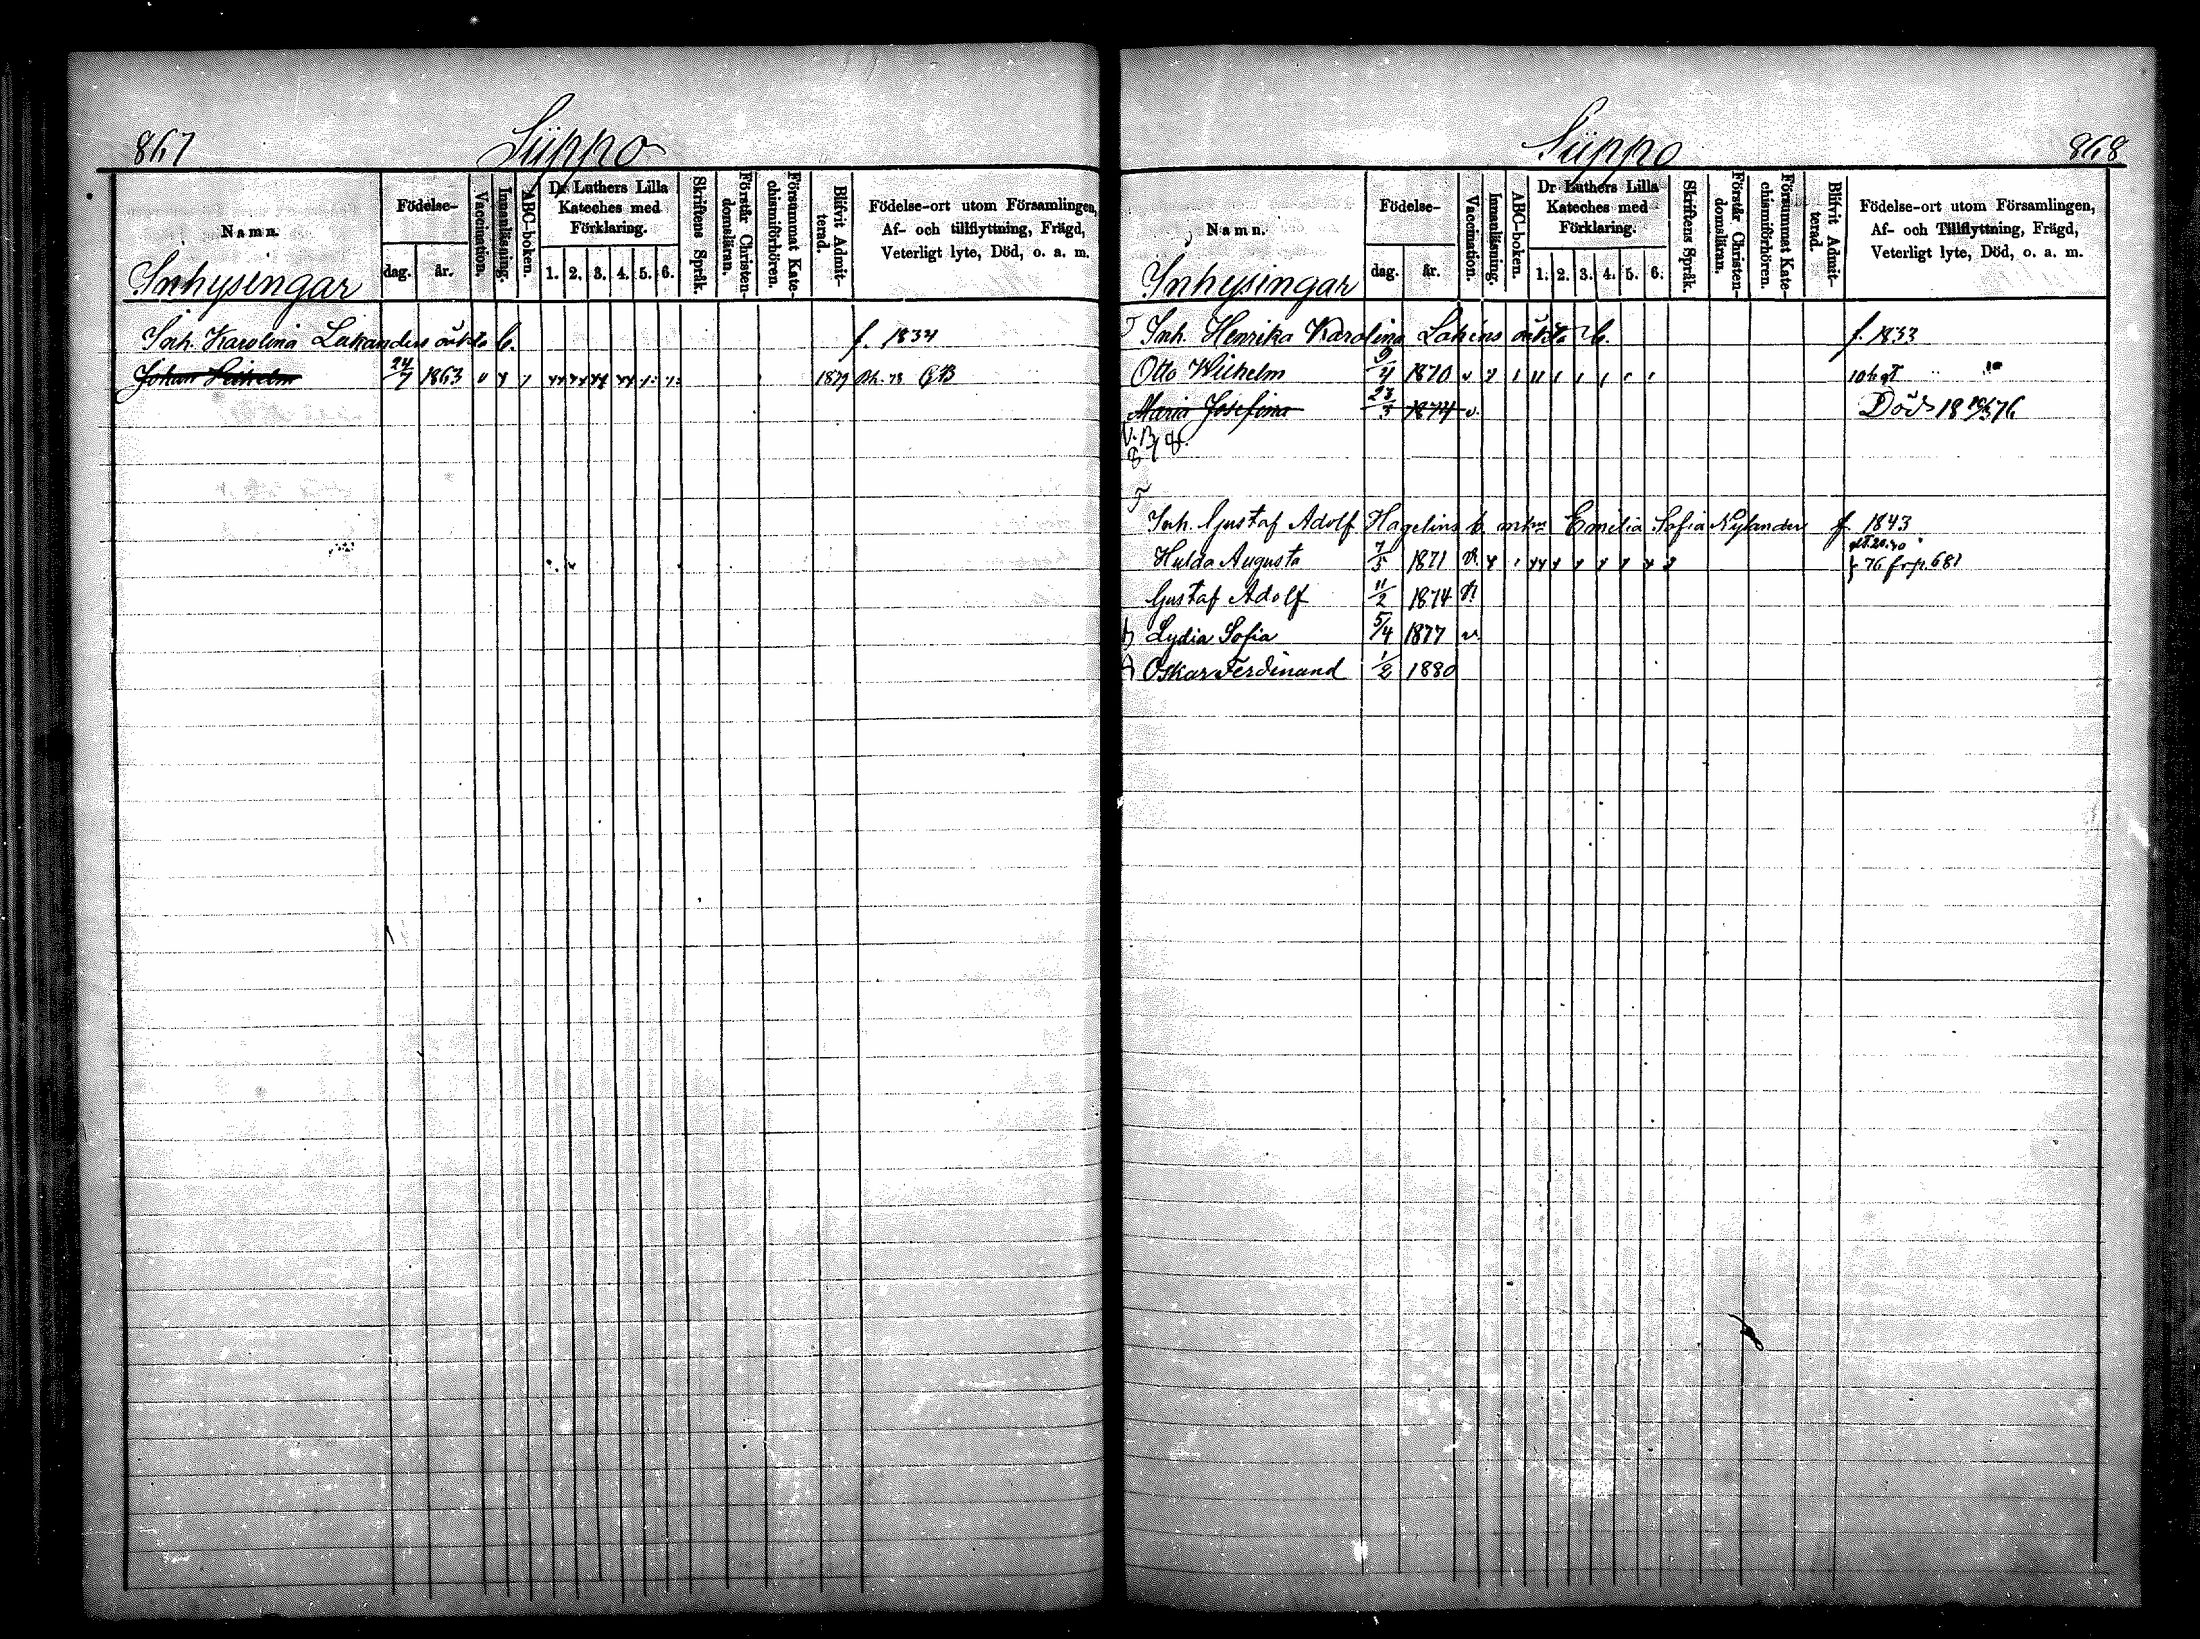 867
Siippo
Namn.
Födelse-
dag.
år.
Vaccination.
Innanläsning.
ABC-boken.
Dr Luthers Lilla
Kateches med
Förklaring.
1. 2. 3. 4. 5. 6.
Skriftens Språk.
Förstår Christen-
domsläran.
Försummat Kate-
chismiförhören.
Blifvit Admit-
terad.
Födelse-ort utom Församlingen,
Af- och tillflyttning, Frägd,
Veterligt lyte, Död, o. a. m.
Inhysingar
Inh. Karolina Lukanders oäkta b. f. 1834
Johan Wilhelm 24/7 1863 v 1879 GB
Siippo
868
Namn.
Födelse-
dag.
år.
Vaccination.
Innanläsning.
ABC-boken.
Dr Luthers Lilla
Kateches med
Förklaring.
1. 2. 3. 4. 5. 6.
Skriftens Språk.
Förstår Christen-
domsläran.
Försummat Kate-
chismiförhören.
Blifvit Admit-
terad.
Födelse-ort utom Församlingen,
Af- och Tillflyttning, Frägd,
Veterligt lyte, Död, o. a. m.
Inhysingar
Inh. Henrika Karolina Lakéns oäkta b. f. 1833
Otto Wilhelm 9/4 1870 v
Maria Josefina 23/3 1874 v. Död
Inh. Gustaf Adolf Hagelins b. m hu Emilia Sofia Nylander f. 1843
Hulda Augusta 7/5 1871 v. 76 fr p. 681
Gustaf Adolf 11/2 1874 v.
Lydia Sofia 5/4 1877 v.
Oskar Ferdinand 1/2 1880